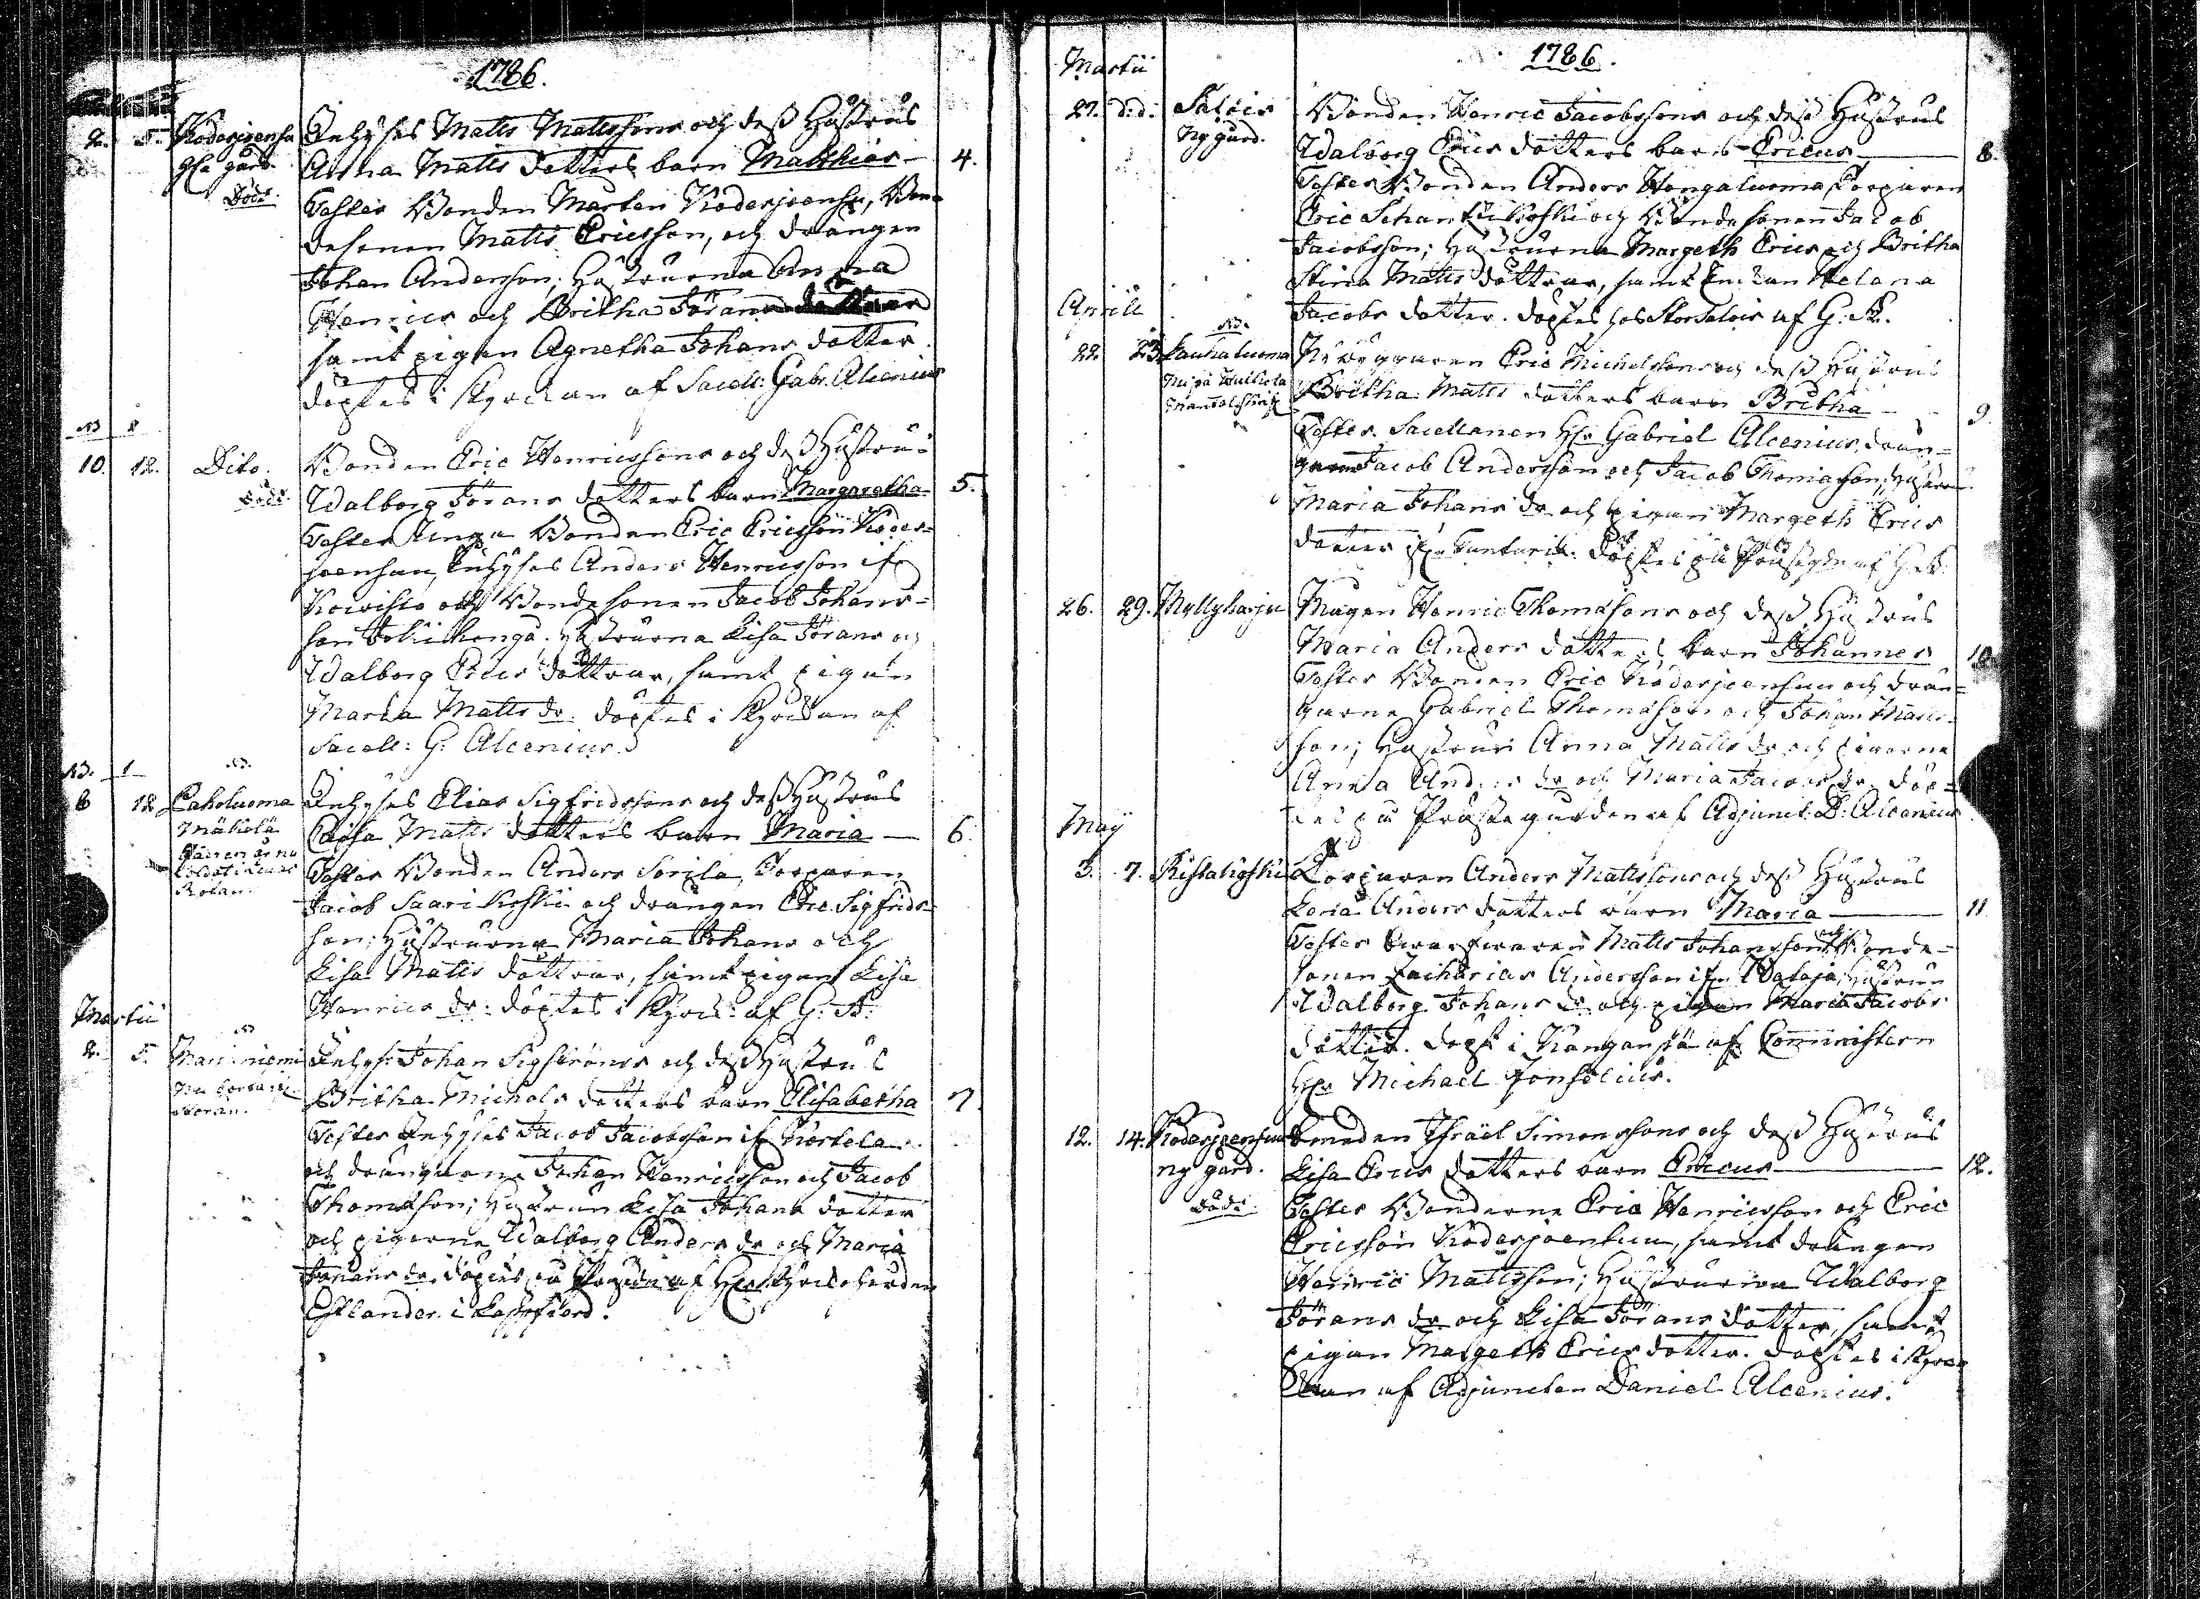 1786.
2. 5. Koderjoensu Inhyses Matts Mattssons och dess Hustrus
gla gård. Anna Matts dotters barn Matthias — 4.
Död. Testes Bonden Marten Koderjoensu, Bon-
desonen Matts Ericsson, och drängen
Johan Andersson; Hustrurna Anna
Henrics och Britha Jörans dottrar
samt pigan Agnetha Johans dotter.
döptes i Kyrckan af Sacell: Gabr. Alcenius
10. 12. Dito. Bonden Eric Henricssons och dess Hustrus
död. Walborg Jörans dotters barn Margaretha 5.
Testes Unga Bonden Eric Ericsson Koder-
joensuu, Inhyses Anders Henricsson ifr
Koivisto och Bondesonen Jacob Johans-
son Hustrurna Lisa Jörans och
Walborg Erics döttrar, samt pigan
Maria Matts dr. döptes i Kyrckan af
Sacell: G: Alcenius.
8 12 Paholuoma Inhyses Elias Sigfridssons och dess Hustrus
Mäkelä Caisa Matts dotters barn Maria — 6.
Testes Bonden Anders Sorila, Torparen
Rotan. Jacob Saarikoski och drängen Eric Sigfrids-
son; Hustrurna Maria Johans och
Lisa Matts döttrar, samt pigan Lisa
Henrics dr: döptes i Kyrck: af G: A:
Martii
2. 5. Inhys: Johan Sigströms och dess Hustrus
Britha Michels dotters barn Elisabetha 7.
Testes Inhyses Jacob Jacobsson if Kortela
och drängarne Johan Henricsson och Jacob
Thomasson; Hustrun Lisa Johans dotter
och pigorna Walborg Anders dr och Maria
Johans dr. döptes af Hr Kyrckoherden
Estlander i Lappfiärd.
1786.
Martii
27. d:d: Salois Bonden Henric Jacobssons och dess Hustrus
Ny gård. Walborg Erics dotters barn Ericus — 8.
Testes Bonden Anders Hongaluoma, Torparen
Eric och Bondesonen Jacob
Jacobsson; Hustrurna Margeth Erics och Britha
Stina Matts döttrar, samt Helena
Jacobs dotter. döptes hos Stor Salois af G: A.
Aprill
22. 23. Pauhaluoma Nybyggaren Eric Michelssons och dess Hustrus
Britha Matts dotters barn Britha 9.
Testes. Sacellanen Hr Gabriel Alcenius, drän-
garne Jacob Andersson och Jacob Thomasson; Hustru
Maria Johans dr och pigan Margeth Erics
dotter döptes på af G. A.
26. 29. Myllyharju Mågen Henric Thomassons och dess Hustrus
Maria Anders dotters barn Johannes 10
Testes Bonden Eric Koderjoensuu och drän-
garne Gabriel Thomasson och Johan Matts-
son; Hustrun Anna Matts dr och pigorne
Anna Anders dr och Maria Jacobs dr döp-
tes på Prästegården af Adjunct: D: Alcenius
Maÿ
3. 7. Ristakoski Torparen Anders Mattssons och dess Hustrus
Caria Anders dotters barn Maria — 11
Testes Matts Johansson och Bonde-
sonen Zacharias Andersson ifrn Wataja; Hustrun
Walborg Johans dr och pigan Maria Jacobs
dotter. döpt i Kanganpä af Comministern
Hr Michael Fonselius.
12. 14. Koderjoensuu Smeden Israel Simonssons och dess Hustrus
ny gård. Lisa Erics dotters barn Ericus — 12.
död. Testes Bonderne Eric Henricsson och Eric
Ericsson Koderjoensuu, samt drängen
Henric Mattsson; Hustrurna Walborg
Jörans dr och Lisa Jörans dotter, samt
pigan Margeth Erics dotter. döptes i Kyrc
kan af Adjuncten Daniel Alcenius.